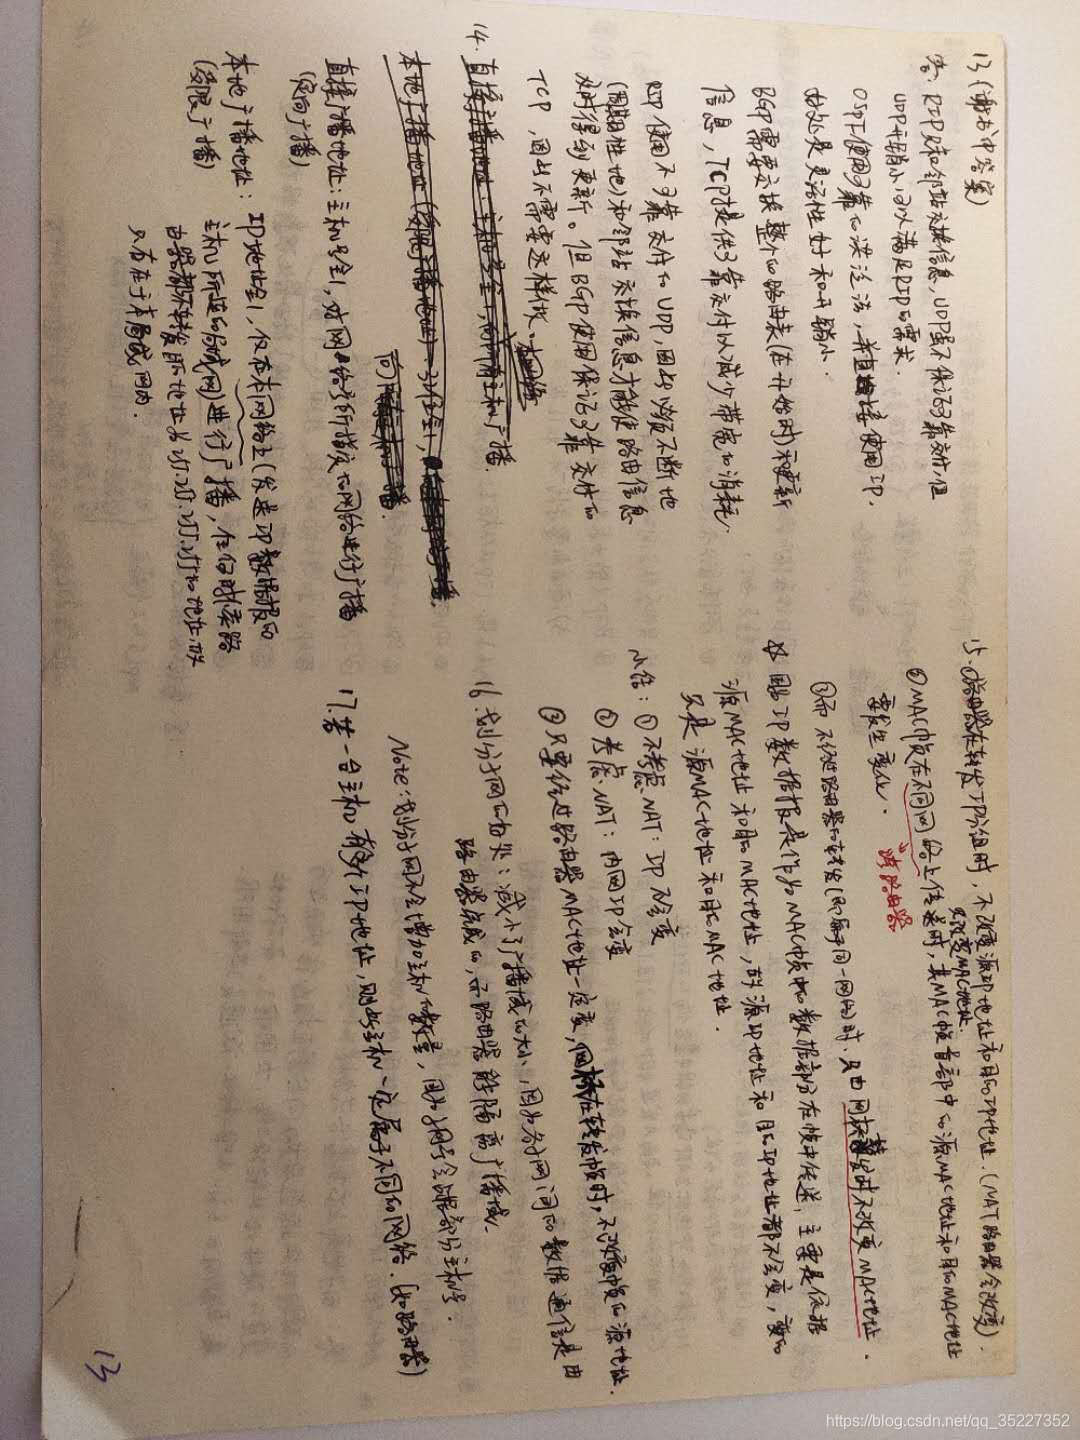 13.(谢书中答案)
答: RIP只和邻站交换信息, UDP虽不保证可靠交付, 但
UDP开销小, 可以满足RIP的需求.
OSPF使用可靠的洪泛法, 并直接使用IP,
好处是灵活性好和开销小.
BGP需要交换整个的路由表(在开始时)和更新
信息, TCP提供可靠交付以减少带宽的消耗.
RIP使用不可靠交付的UDP, 因此必须不断地
(周期性地)和邻站交换信息才能使路由信息
及时得到更新。但BGP使用保证可靠交付的
TCP, 因此不需要这样做。
14.
直接广播地址: 主机号全1, 对网络号所指定的网络进行广播
(定向广播)
本地广播地址: IP地址全1, 仅在本网络上(发送IP数据报的
(受限广播) 主机所连的局域网)进行广播, 任何时候路
由器都不转发目的地址为255.255.255.255的地址, 故
只存在于本局域网内.
15. ①路由器在转发IP分组时, 不改变源IP地址和目的IP地址. (NAT路由器会改变).
只改变MAC地址.
②MAC帧在不同网络上传送时, 其MAC帧首部中的源MAC地址和目的MAC地址
要发生变化.
跨路由器
③而不经过路由器的转发(即属于同一网内)时. 只由网桥转发时不改变MAC地址.
因为IP数据报是作为MAC帧中的数据部分在帧中传送, 主要是依据
源MAC地址和目的MAC地址, 故源IP地址和目的IP地址都不会变, 变的
只是源MAC地址和目的MAC地址.
小结: ①不考虑NAT: IP不会变
②考虑NAT: 内网IP会变
③只要经过路由器MAC地址一定变, 网桥在转发帧时, 不改变帧的源地址.
16. 划分子网的好处: 减小了广播域的大小, 因为各子网间的数据通信是由
路由器完成的, 而路由器能隔离广播域.
Note: 划分子网不会增加主机的数量, 因为子网号会占据部分主机号.
17. 若一台主机有多个IP地址, 则此主机一定属于不同的网络. (如路由器)
13
https://blog.csdn.net/qq_35227352